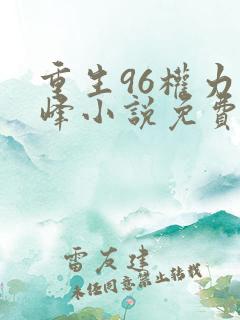 重生96權力
峰小說免費
雷友建
未经同意禁止转载